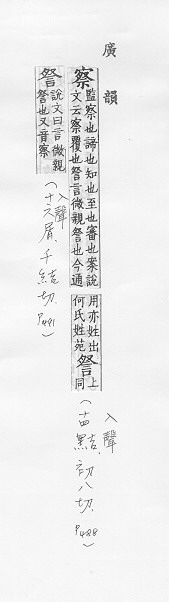 廣韻
察 監察也諦也知也至也審也案說
文云察覆也詧言微親詧也今通
用亦姓出
何氏姓苑 詧 上
同
(入聲
十四黠、初八切、P488)
詧 說文曰言微親
詧也又音察
(入聲
十六屑、千結切、P491)